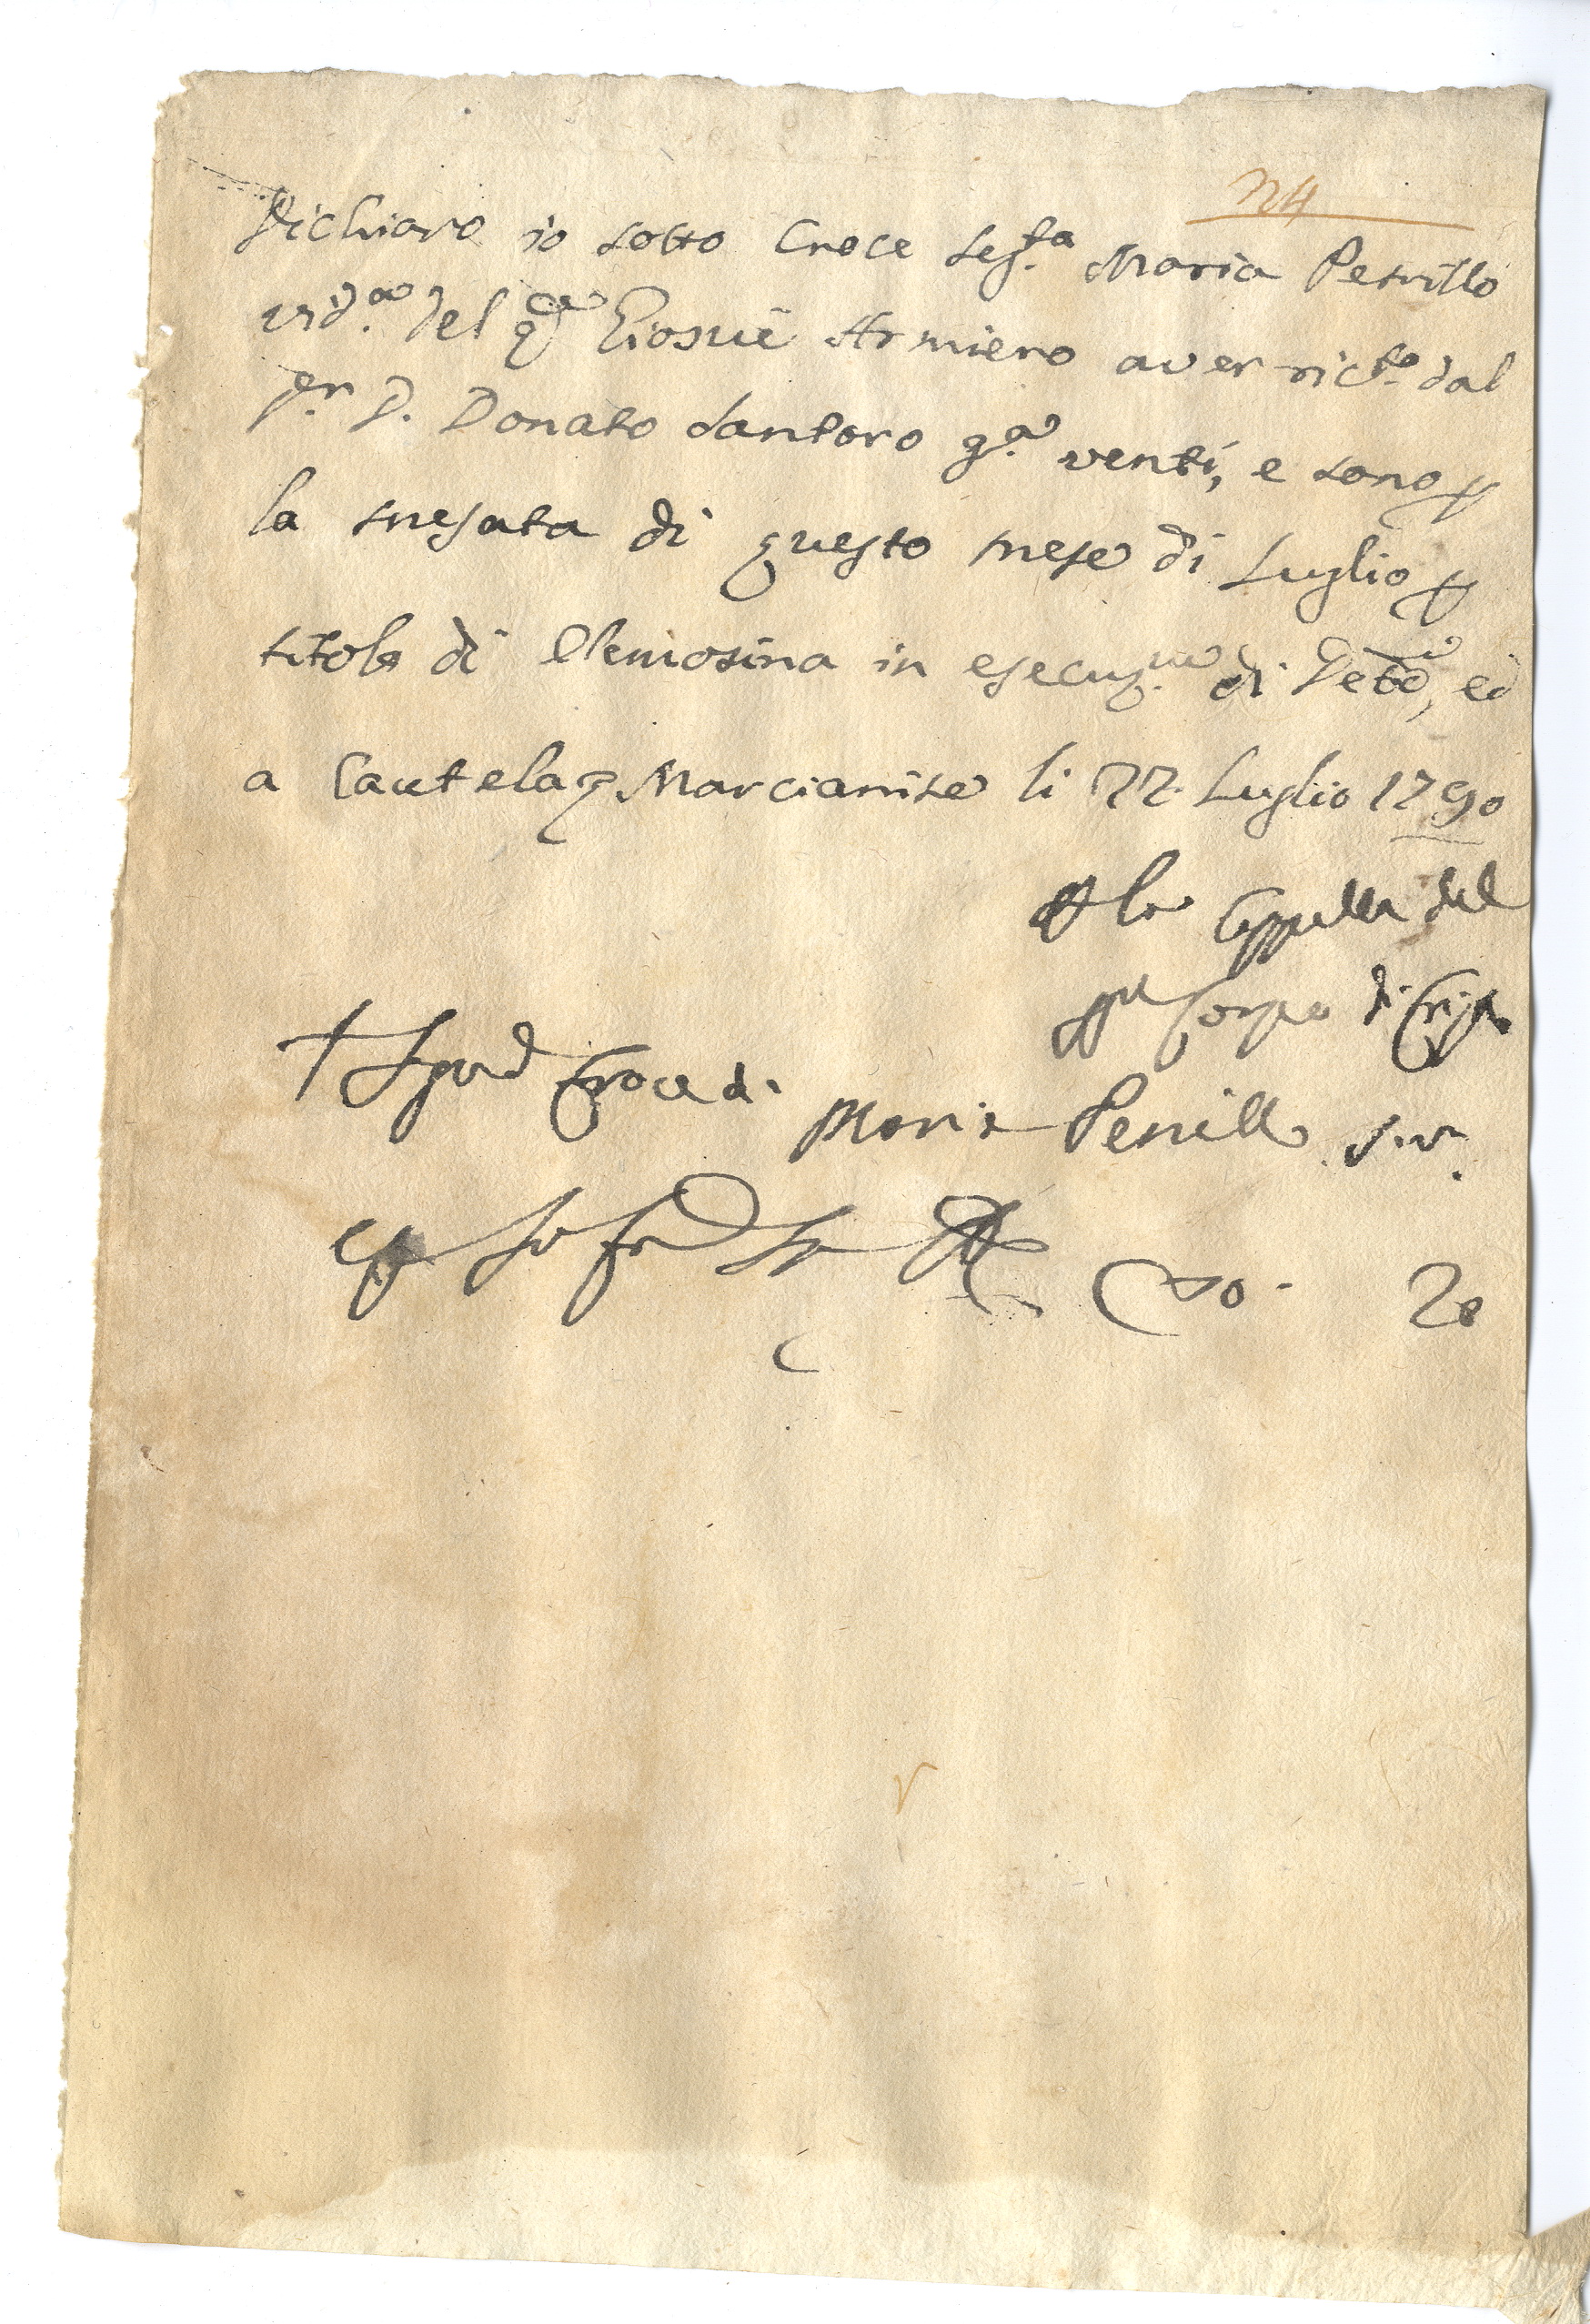 24
Dichiaro io sotto Croce seg.ta Maria Petrillo
vid.a del qm Giosuè Armiero aver ric.to dal
Sr. D. Donato Santoro g.a venti, e sono p
la mesata di questo mese di Luglio p
titolo di Elemosina in esecuz.ne di Testo, ed
a Cautela Marcianise li 22 Luglio 1790
p la Cappella del
Corpo di Cristo
† Segno di Croce di Maria Petrillo
20